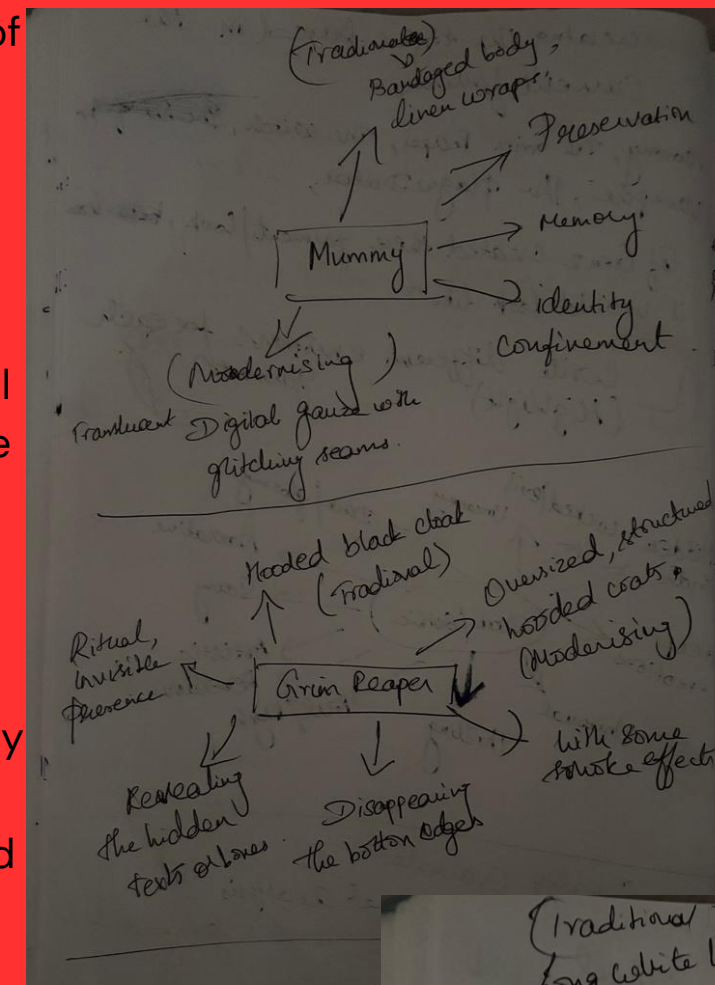 of
l
e
y
d
(Tradional)
Bandaged body,
linen wraps.
Preservation
Mummy
Memory.
identity
confinement
(Modernising)
Translucent Digital gauze with
glitching seams.
Hooded black cloak
(Tradional)
Oversized, structured
hooded coats.
(Moderising)
Ritual,
invisible
presence
Grim Reaper
with some
smoke effects
Revealing
the hidden
texts or bones.
Disappearing
the bottom edges
(Traditional
long white